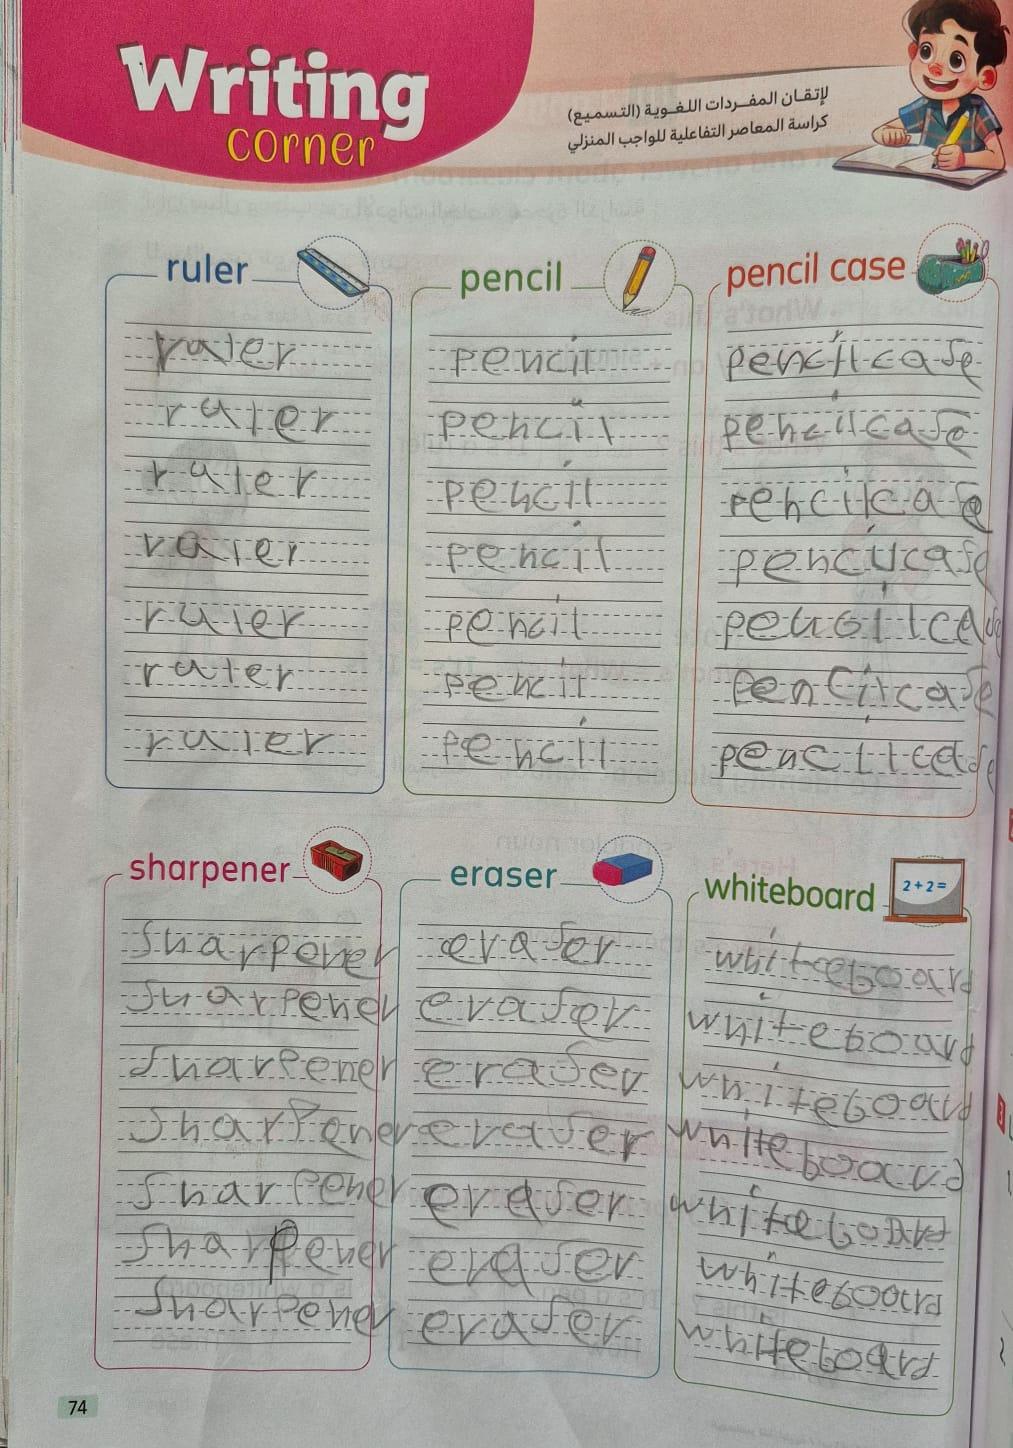 Writing
corner
لإتقان المفردات اللغوية (التسميع)
كراسة المعاصر التفاعلية للواجب المنزلي
ruler
ruler
ruler
ruler
ruler
ruler
ruler
ruler
pencil
pencil
pencil
pencil
pencil
pencil
pencil
pencil
pencil case
pencil case
pencil case
pencil case
pencil case
pencil case
pencil case
pencil case
sharpener
sharpener
sharpener
sharpener
sharpener
sharpener
sharpener
sharpener
eraser
eraser
eraser
eraser
eraser
eraser
eraser
eraser
whiteboard
2+2=
whiteboard
whiteboard
whiteboard
whiteboard
whiteboard
whiteboard
whiteboard
74